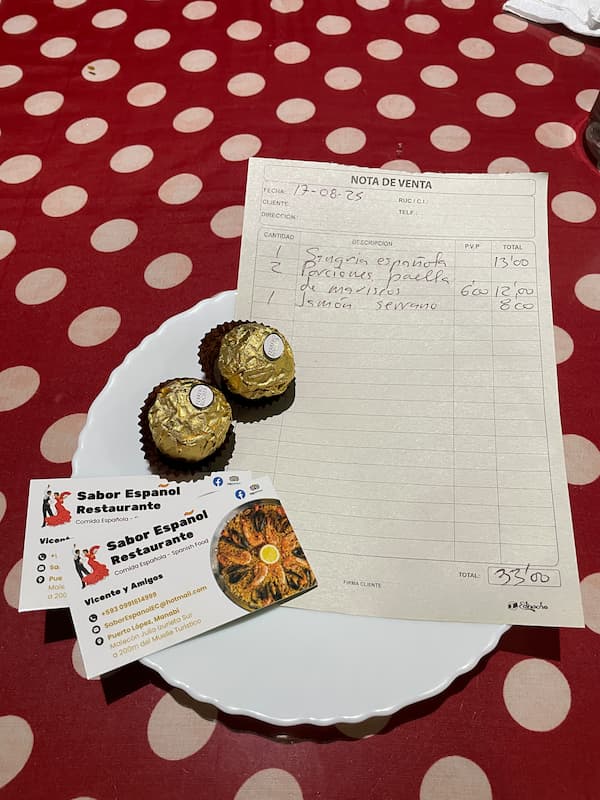 NOTA DE VENTA
FECHA: 17-08-25 RUC / C.I.:
CLIENTE:
DIRECCION: TELF.:
CANTIDAD DESCRIPCION P.V.P TOTAL
1 Singria española 13'00
2 Porciones paella
de mariscos 6'00 12'00
1 Jamón serrano 8'00
FIRMA CLIENTE TOTAL: 33'00
Sabor Español
Restaurante
Comida Española -
Sabor Español
Restaurante
Comida Española - Spanish Food
Vicente y Amigos
+593 0991614999
SaborEspanolEC@hotmail.com
Puerto López, Manabí
Malecón Julia Izurieta Sur
a 200m del Muelle Turístico